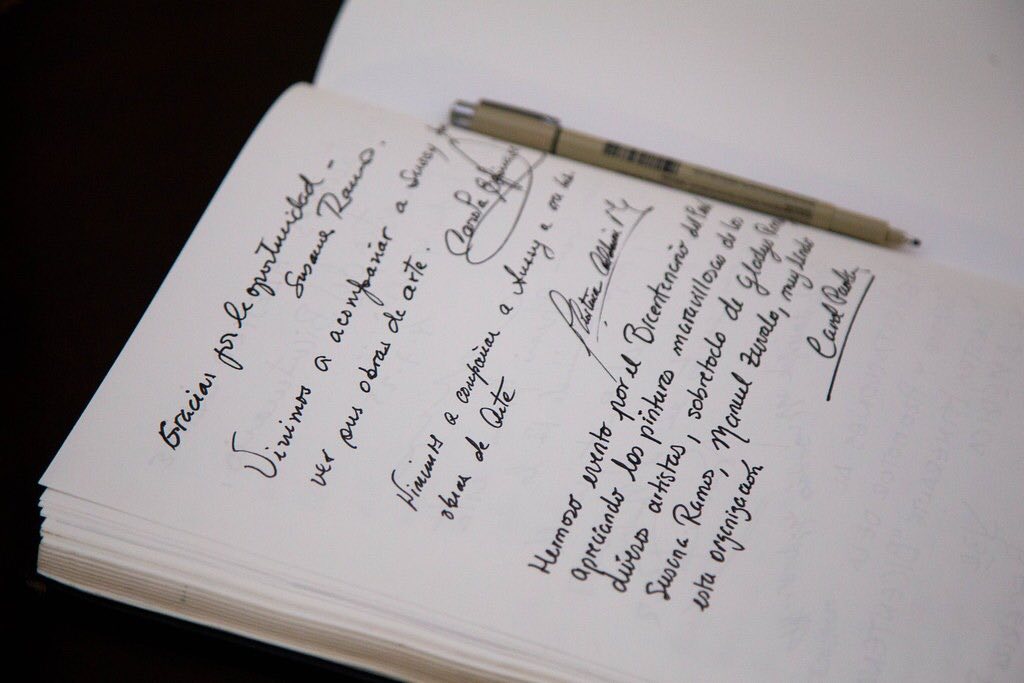 Gracias por la oportunidad -
Susana Ramos.
Vinimos a acompañar a Susey
ver sus obras de arte.
Vinimos a compañar a Susey a ver las
obras de Arte
Hermoso evento por el Bicentenario del
apreciando los pinturas maravillosas de los
diversos artistas, sobretodo de Gladys
Susana Ramos, Manuel Zuvalo, muy lindo
esta organización
Carol